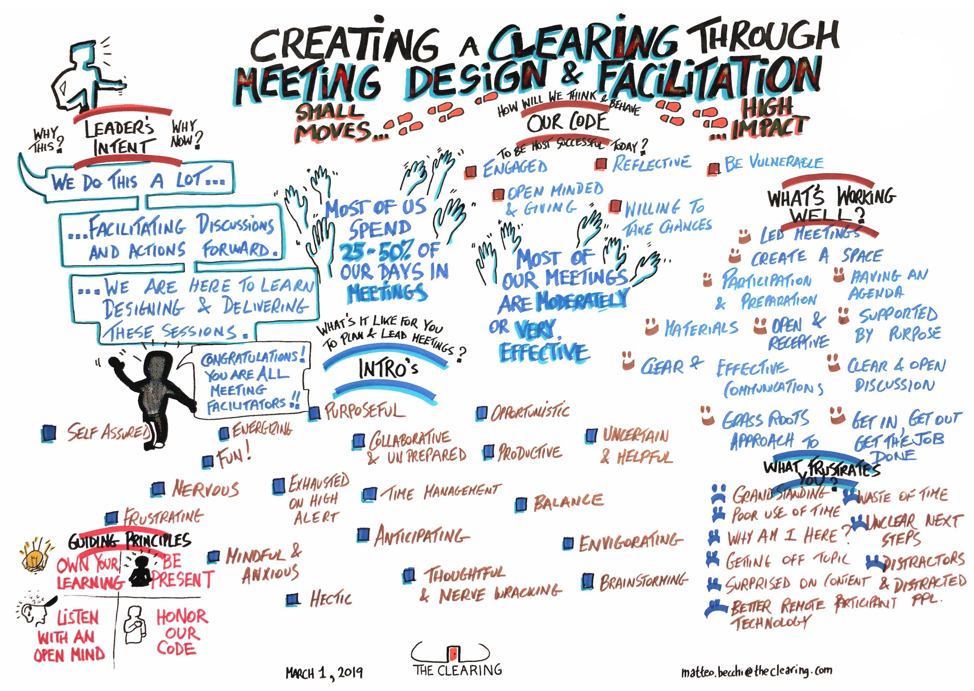 CREATING A CLEARING THROUGH
MEETING DESIGN & FACILITATION
SMALL
MOVES...
HOW WILL WE THINK & BEHAVE
OUR CODE
TO BE MOST SUCCESSFUL TODAY?
HIGH
... IMPACT
WHY
THIS?
LEADER'S
INTENT
WHY
NOW?
WE DO THIS A LOT...
...FACILITATING DISCUSSIONS
AND ACTIONS FORWARD.
...WE ARE HERE TO LEARN
DESIGNING & DELIVERING
THESE SESSIONS.
CONGRATULATIONS!
YOU ARE ALL
MEETING
FACILITATORS!!
MOST OF US
SPEND
25-50% OF
OUR DAYS IN
MEETINGS
ENGAGED
REFLECTIVE
BE VULNERABLE
OPEN MINDED
& GIVING
WILLING TO
TAKE CHANCES
MOST OF
OUR MEETINGS
ARE MODERATELY
OR VERY
EFFECTIVE
WHAT'S WORKING
WELL?
LED MEETINGS
CREATE A SPACE
PARTICIPATION
& PREPARATION
HAVING AN
AGENDA
MATERIALS
OPEN &
RECEPTIVE
SUPPORTED
BY PURPOSE
CLEAR & EFFECTIVE
COMMUNICATIONS
CLEAR & OPEN
DISCUSSION
GRASS ROOTS
APPROACH TO
GET IN, GET OUT
GET THE JOB
DONE
WHAT'S IT LIKE FOR YOU
TO PLAN & LEAD MEETINGS?
INTRO'S
SELF ASSURED
ENERGIZING
FUN!
PURPOSEFUL
OPORTUNISTIC
COLLABORATIVE
& UNPREPARED
PRODUCTIVE
UNCERTAIN
& HELPFUL
NERVOUS
EXHAUSTED
ON HIGH
ALERT
TIME MANAGEMENT
BALANCE
FRUSTRATING
ANTICIPATING
ENVIGORATING
MINDFUL &
ANXIOUS
THOUGHTFUL
& NERVE WRACKING
BRAINSTORMING
HECTIC
WHAT FRUSTRATES
YOU?
GRANDSTANDING
WASTE OF TIME
POOR USE OF TIME
UNCLEAR NEXT
STEPS
WHY AM I HERE?
GETTING OFF TOPIC
DISTRACTORS
& DISTRACTED
PPL.
SURPRISED ON CONTENT
BETTER REMOTE PARTICIPANT
TECHNOLOGY
GUIDING PRINCIPLES
OWN YOUR
LEARNING
BE
PRESENT
LISTEN
WITH AN
OPEN MIND
HONOR
OUR
CODE
MARCH 1, 2019
THE CLEARING
matteo.becchi@theclearing.com